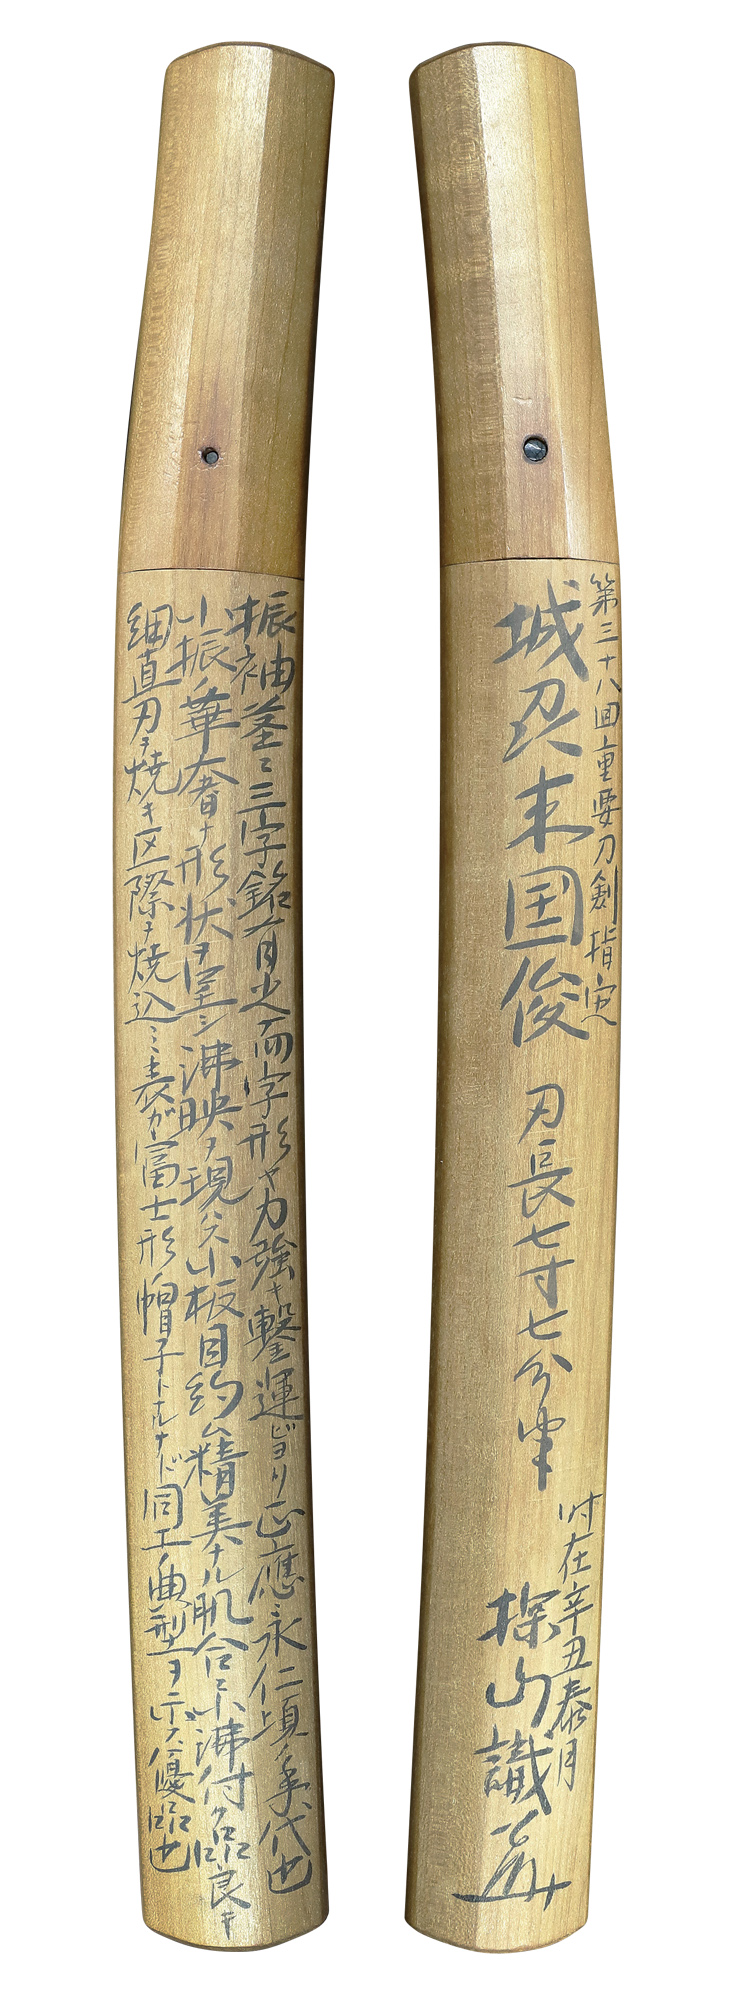 第三十八回重要刀剣指定
城刕来国俊
刃長七寸七分半
时在辛丑泰月
探山識
振袖茎ニ三字銘有之而字形ヤ力強キ鏨運ビヨリ正應永仁頃ノ年代也
小振ノ華奢ナ形状ヲ呈シ沸映ヲ現ハス小板目約ム精美ナル肌合ニ小沸付ク匂口良キ
細直刃ヲ焼キ区際ヲ焼込ミ表ガ冨士形ノ帽子トナルナド同工ノ典型ヲ示ス優品也